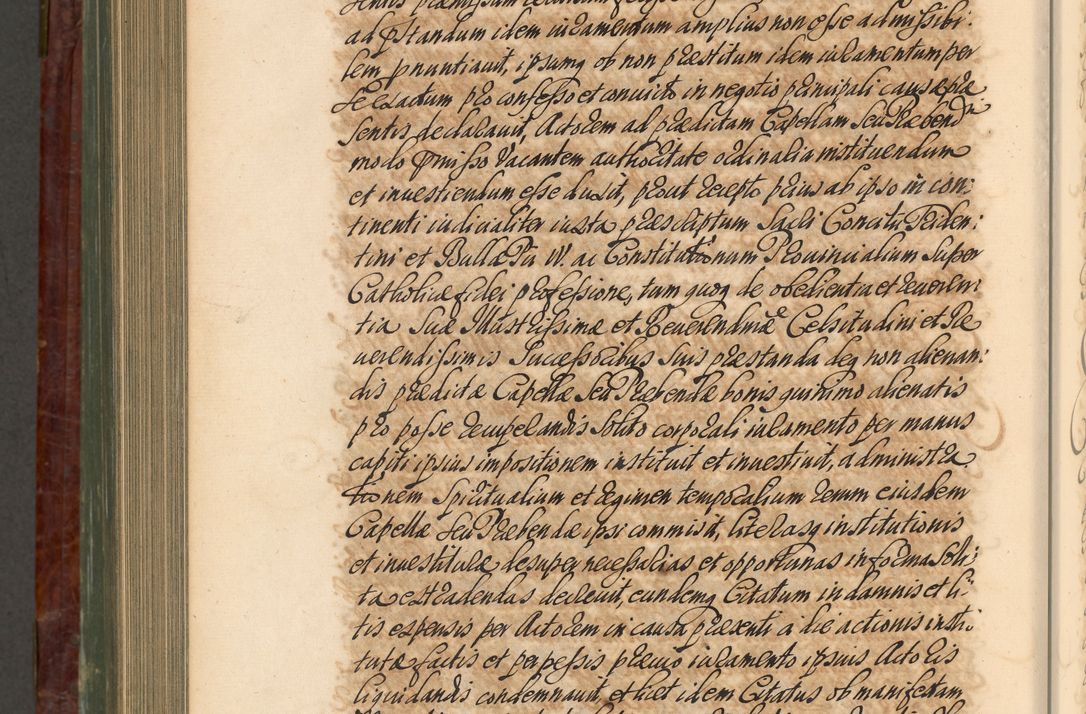 ad pstandum idem iuramentum amplius non esse admissibi:
lem pnuntiauit, ipsumq ob non præstitum idem iuramentum per
se exactum pro confesso et conuicto in negotio principali causæ præ
sentis declarauit, Actorem ad prædictam Capellam Seu Præbend
modo præmisso Vacantem authoritate ordinaria instituendum
et inuestiendum esse duxit, prout recepto prius ab ipso in con:
tinenti iudicialiter iuxta præscriptum Sacri Concilii Triden:
tini et Bullæ Pii IV. ac Constitutionum Prouincialium Super
Catholicæ fidei professione, tum quoq de obedientia et reueren:
tia Suæ Illustrissimæ et Reuerendmæ Celsitudini et Re
uerendissimis Successoribus Suis præstanda deq non alienan:
dis prædictæ Capellæ Seu Præbendæ bonis quinimo alienatis
pro posse recuperandis Solito corporali iuramento per manus
capiti ipsius impositionem instituit et inuestiuit, administra
tionem Spiritualium et regimen temporalium rerum eiusdem
Capellæ Seu Præbendæ ipsi commisit, literasq institutionis
et inuestituræ desuper necessarias et opportunas in forma Soli:
ta extradendas decreuit, eundemq Citatum in damnis et li
tis expensis per Actorem in causa præsenti a die actionis insti:
tutæ factis et perpessis præuio iuramento ipsius Actoris
liquidandis condemnauit, et licet idem Citatus ob manifestam